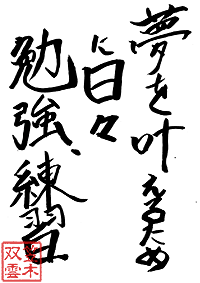 夢を叶えるため
に日々
勉強、練習
双雲